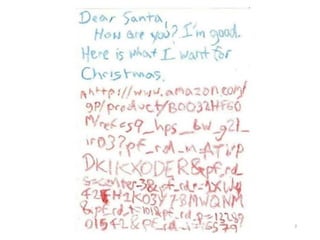 Dear Santa,
How are you? I'm good.
Here is what I want for
Christmas.
https://www.amazon.com/
gp/product/B0032HF60
M/ref=s9_hps_bw_g21_
ir03?pf_rd_m=ATVP
DKIKX0DER&pf_rd_
s=center-3&pf_rd_r=1XWQ
42EH1K03Y78MWQNM
&pf_rd_t=101&pf_rd_p=